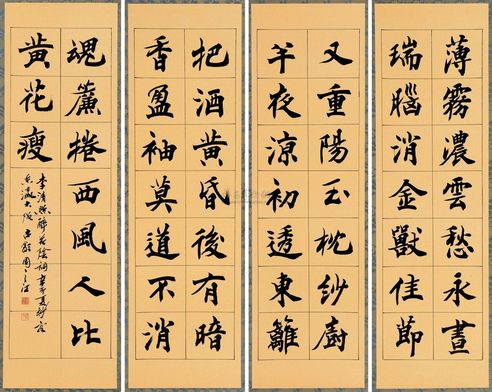 薄霧濃雲愁永晝
瑞腦消金獸佳節
又重陽玉枕紗廚
半夜涼初透東籬
把酒黃昏後有暗
香盈袖莫道不消
魂簾捲西風人比
黃花瘦
李清照醉花陰詞